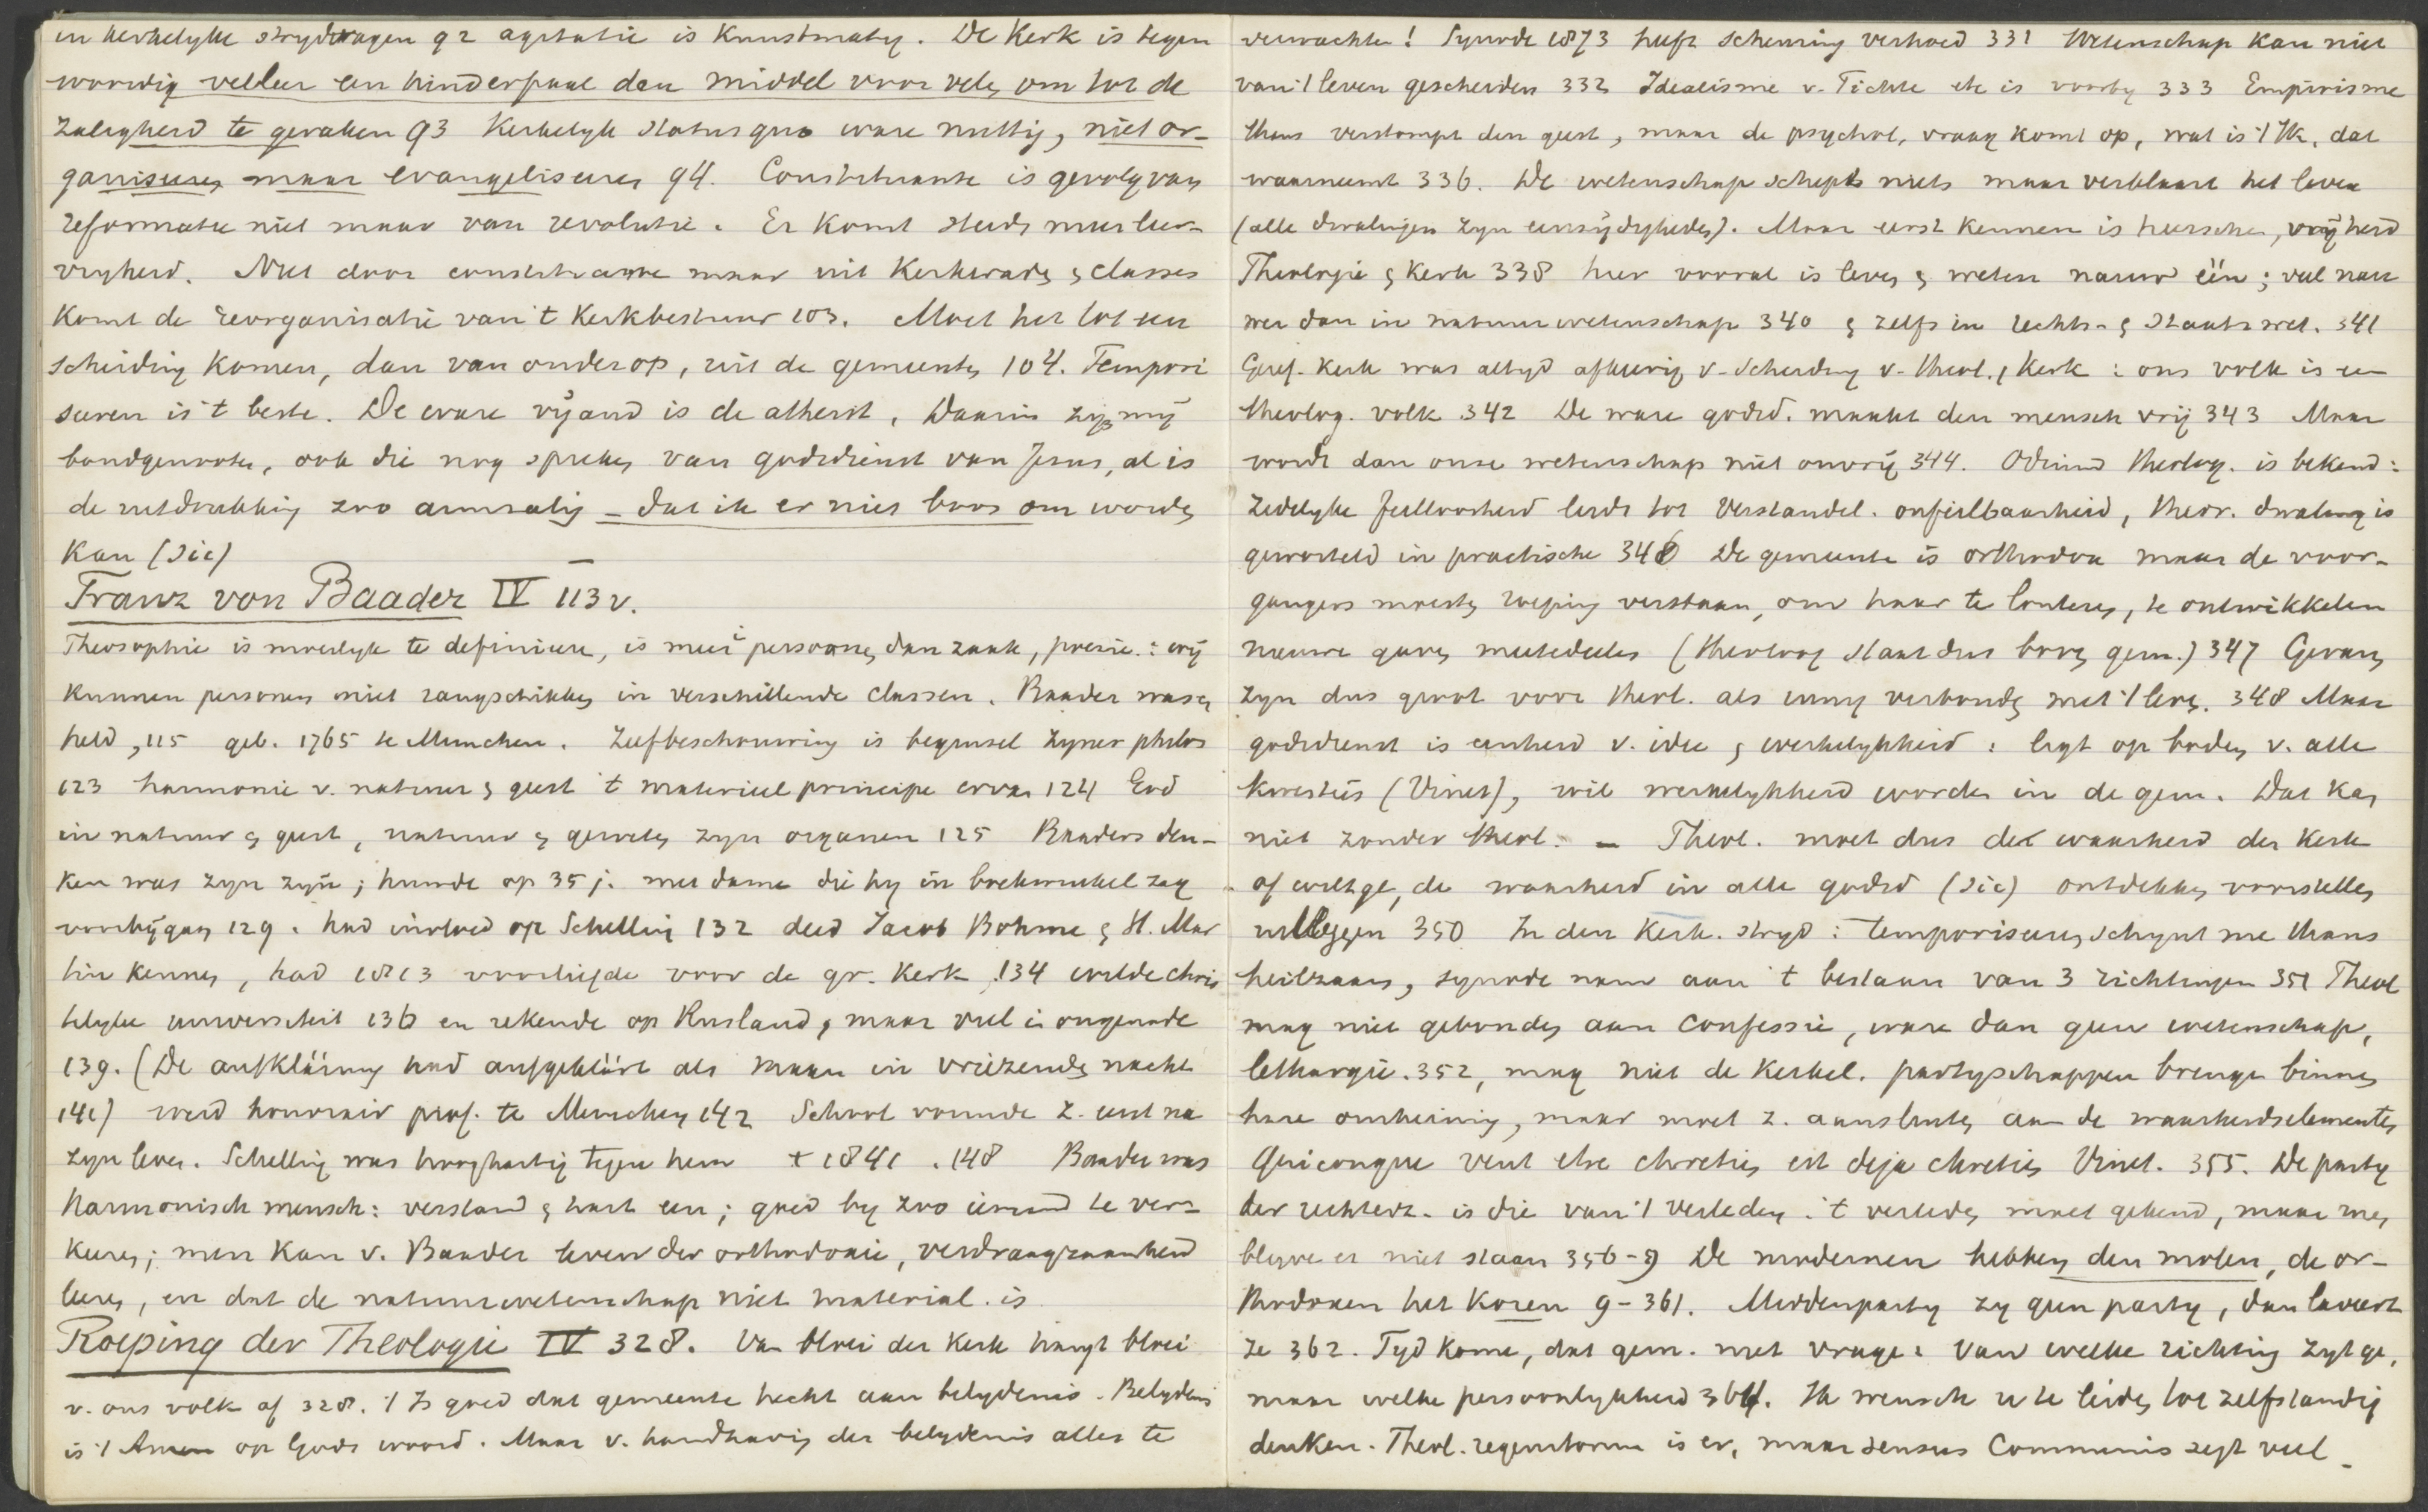 en kerkelyke strydvragen 92 agitatie is Kunstmatig. De Kerk is tegen
woordig veeleer een hinderpaal dan middel voor velen om tot de
Zaligheid te geraken 93 Kerkelyk status quo ware nuttig, niet or-
ganiseeren maar evangeliseeren 94. Constituante is gevolg van
reformatie niet maar van revolutie. Er komt steeds meer leer-
vryheid. Niet door constituante maar uit Kerkeraden & classes
Komt de reorganisatie van 't Kerkbestuur 103. Moet het tot een
scheiding komen, dan van onderop, uit de gemeenten 104. Tempori
seeren is 't beste. De ware vÿand is de atheist. Daarin zyn mÿ
bondgenooten, ook die nog spreken van godsdienst van Jesus, al is
de uitdrukking zoo armzalig – dat ik er niet boos om worden
Kan (sic)
Franz von Baader IV 113 v.
Theosophie is moeilyk te definieeren, is meer persoon dan zaak, : wÿ
Kunnen personen niet rangschikken in verschillende classen. Baader was
held, 115 geb. 1765 te Munchen. Zelfbeschouwing is beginsel zyner philos
123 harmonie v. natuur & geest 't materieel principe ervan 124 God
in natuur & geest, natuur & geweten zyn organen 125 Baaders den-
ken was zyn zyn; huwde op 35 j. met dame die hy in boekwinkel zag
voorbÿgaan 129. had invloed op Schelling 132 deed Jacob Bohme & St. Mar
tin kennen, had 1813 voorliefde voor de gr. Kerk 134 wilde chris
telyke universiteit 136 en rekende op Rusland, maar viel in ongenade
139. (De aufklärung had aufgeklärt als maan in vriezende nacht
141) werd honorair prof. te Munchen 142 School vormde z. eerst na
zyn leven. Schelling was hooghartig tegen hem + 1841. 148 Baader was
Harmonisch mensch: verstand & hart een; goed by zoo iemand te ver-
keeren; men kan v. Baader leven der orthodoxie, verdraagzaamheid
leeren, en dat de natuurwetenschap niet material. is
Roeping der Theologie IV 328. Van bloei der Kerk hangt bloei
v. ons volk af 328. 't Is goed dat gemeente hecht aan belydenis. Belydenis
is 't Amen op Gods woord. Maar v. handhaving der belydenis alles te
verwachten! Synode 1873 heeft scheuring verhoed 331 Wetenschap kan niet
van 't leven gescheiden 332 Idealisme v. Fichte etc is voorby 333 Empirisme
thans verstompt den geest, maar de psychol. vraag komt op, wat is 't Ik, dat
waarneemt 336. De wetenschap schept niets maar verklaart het leven
(alle dwalingen zyn eenzÿdigheden). Maar eerst kennen is heerschen, vrÿheid
Theologie & Kerk 338 hier vooral is leven & weten nauw één; veel nau
wer dan in natuurwetenschap 340 & zelfs in rechts- & Staatswet. 341
Geref. Kerk was altyd afkeerig v. scheiding v. theol. & Kerk: ons volk is een
theolog. volk 342 De ware godsd. maakt den mensch vrÿ 343 Maar
wordt dan onze wetenschap niet onvrÿ 344. Odium theolog. is bekend:
Zedelyke feilbaarheid leidt tot Verstandel. onfeilbaarheid, theor. dwaling is
geworteld in practische 346 De gemeente is orthodox maar de voor-
gangers moeten roeping verstaan, om haar te louteren, te ontwikkelen
nieuwe gaven mededeelen (theoloog staat dus boven gem.) 347 Gevaren
zyn dus groot voor theol. als innig verbonden met 't leven. 348 Maar
godsdienst is eenheid v. idee & werkelykheid: ligt op bodem v. alle
kwestiës (Vinet), wil werkelykheid worden in de gem. Dat kan
niet zonder theol. – Theol. moet dus de waarheid der Kerk
of wiltge, de waarheid in alle godsd (sic) ontdekken voorstellen
uitleggen 350 In den Kerk. stryd: temporiseeren schynt me thans
heilzaam, synode nam aan 't bestaan van 3 richtingen 351 Theol
mag niet gebonden aan confessie, ware dan geen wetenschap,
lethargie. 352, mag niet de kerkel. partyschappen brengen binnen
hare omheining, maar moet z. aansluiten aan de waarheidselementen
Quiconque veut etre chretien est deja chretien Vinet. 355. De party
der rechterz. is die van 't verleden: 't verleden moet gekend, maar men
blyve er niet staan 356-9 De modernen hebben den molen, de or-
thodoxen het Koren 9-361. Middenparty zy geen party, dan laveert
ze 362. Tyd kome, dat gem. niet vrage: Van welke richting zyt ge,
maar welke persoonlykheid 364. Ik wensch u te leiden tot zelfstandig
denken. Theol. is er, maar sensus Communis zegt veel